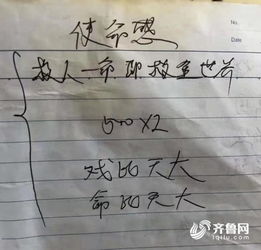 No.
Date
使命感
救人一命即救全世界
500×2
戏比天大
命比天大
齐鲁网
iqilu.com